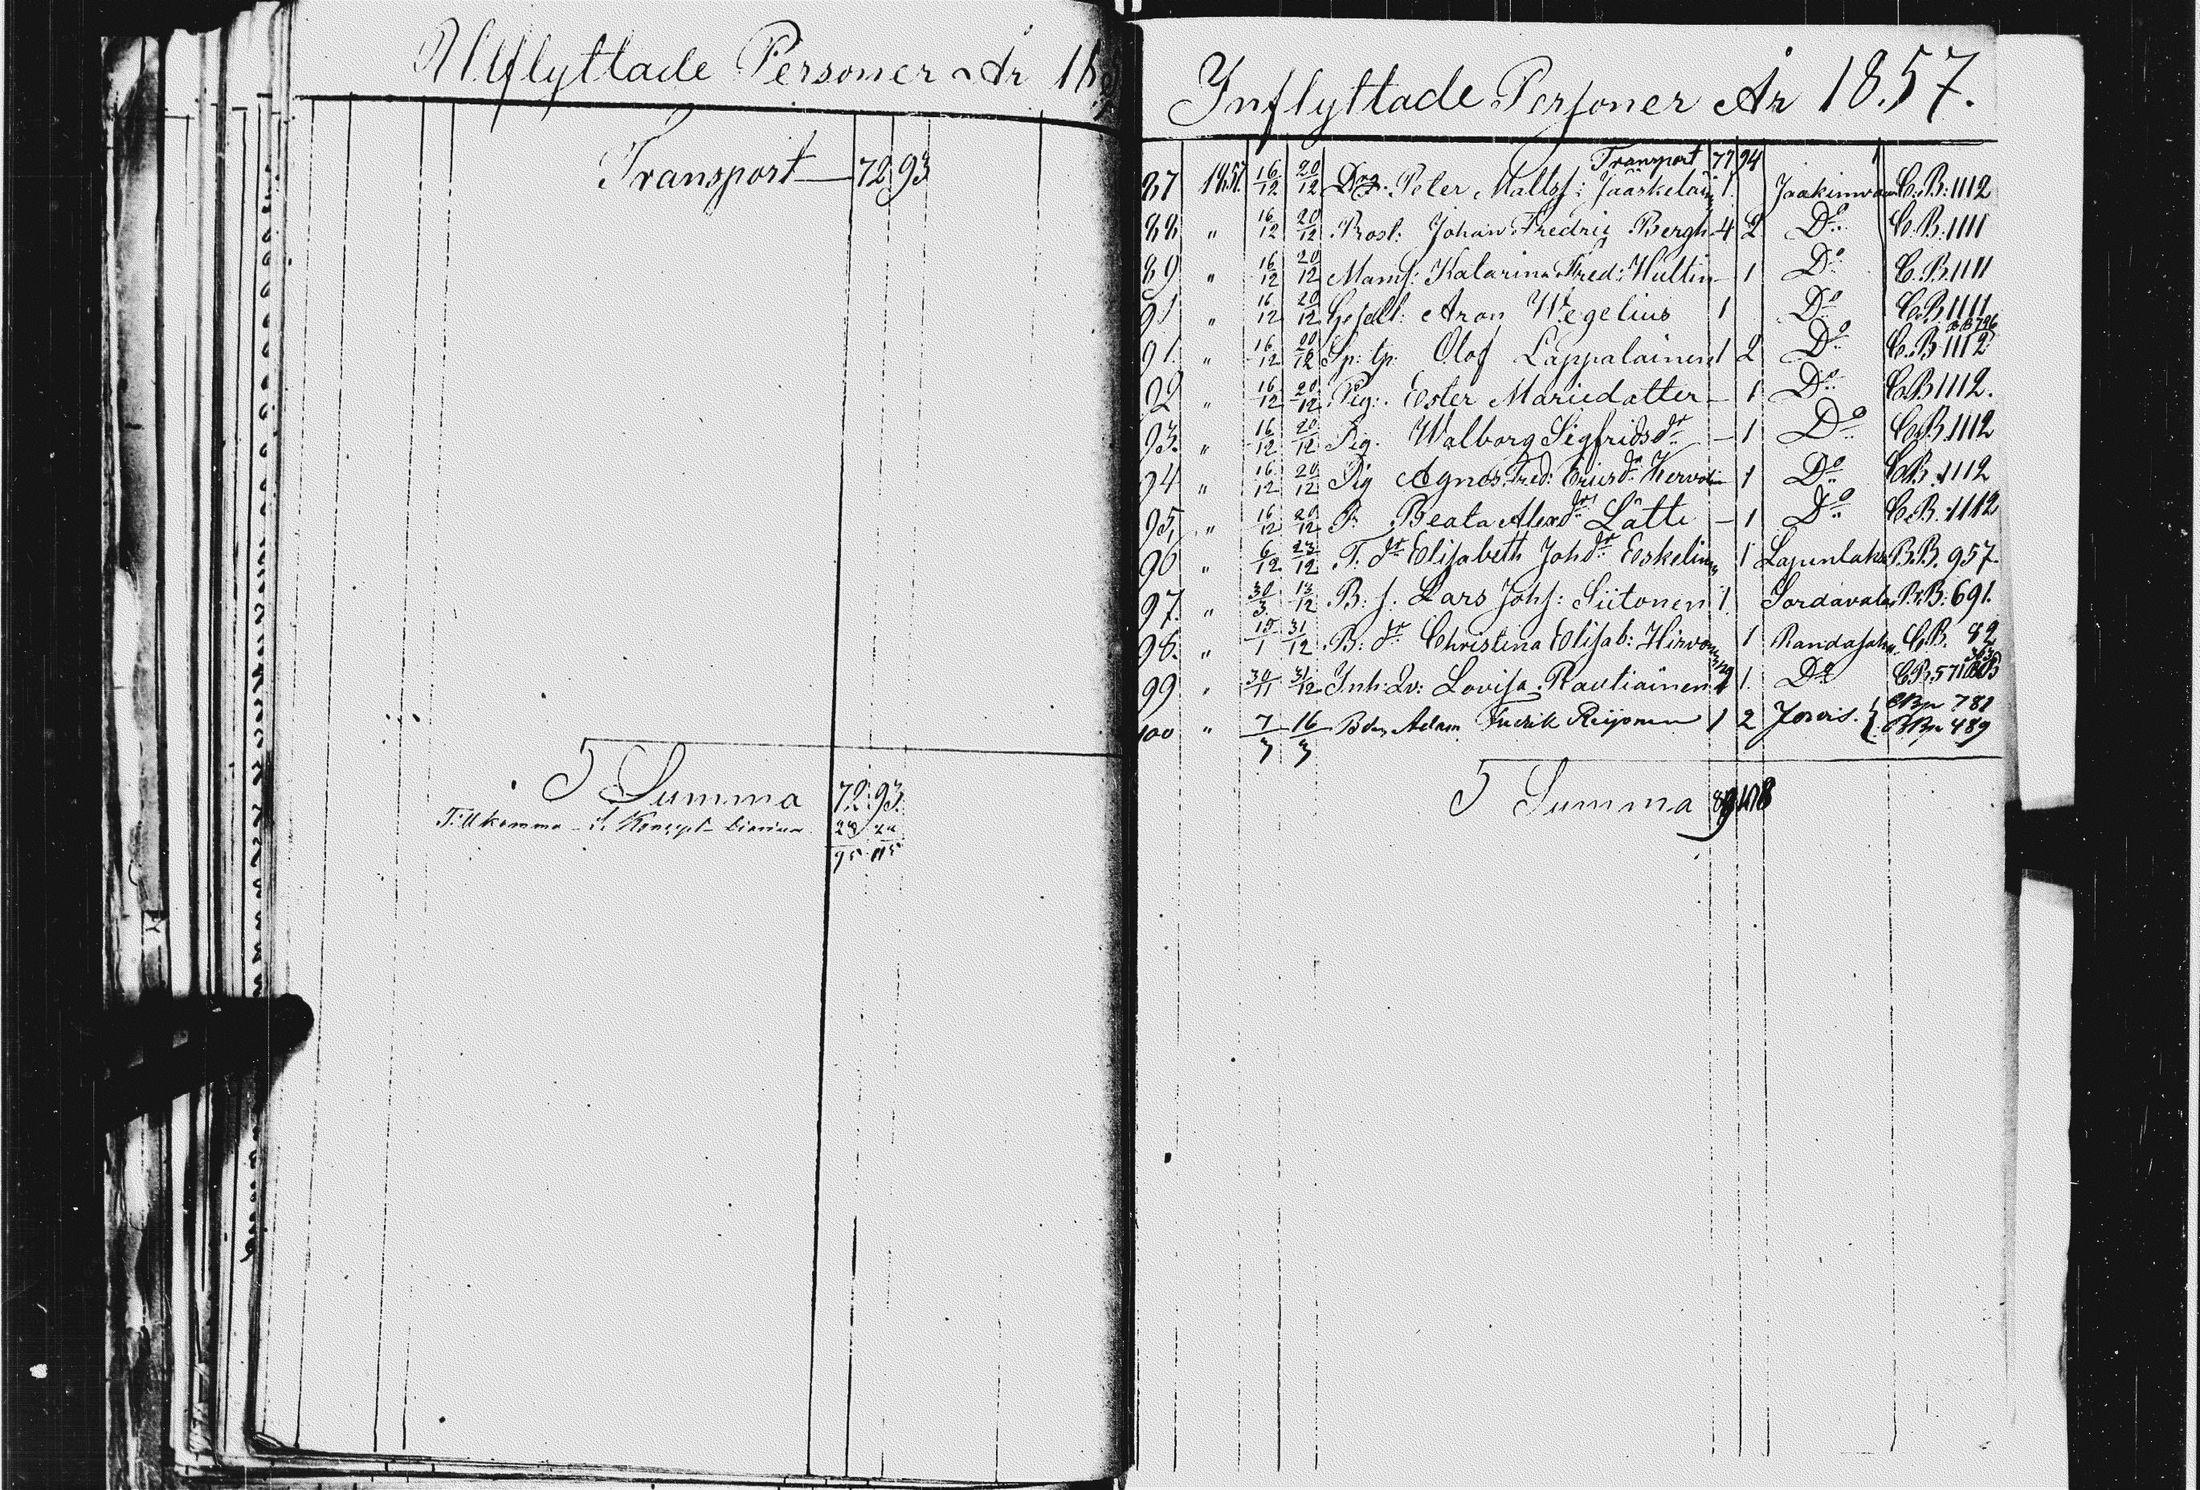 Utflyttade Personer År 185
Transport — 72 93
S Summa 72 93
Tillkomma
95 115
Inflyttade Personer År 18.57.
Transport 77 94
87 1857. 16/12 20/12 Drg. Peter Mattsf: Jääskeläin 1 C.B. 1112
88 " 16/12 20/12 Prost: Johan Fredric Bergh 4 2 Do C.B. 1111
89 " 16/12 20/12 Mams: Katarina Fred: Hultin — 1 Do C.B. 1111
91 " 16/12 20/12 Aron Wegelius 1 Do C.B 1111
91. " 16/12 20/12 Sp: tp: Olof Lappalainen 1 2 Do C.B 1112
92 " 16/12 20/12 Pig: Ester Mariedotter — 1 Do C.B 1112.
93. " 16/12 20/12 Pig. Walborg Sigfridsdr — 1 Do C.B. 1112
94 " 16/12 20/12 Pig Agnes Fred: — 1 Do C.B. 1112
95, " 16/12 20/12 P. Beata Alexdr Lätti — 1 Do C.B. 1112
96 " 6/12 23/12 T. dr Elisabeth Johdr Eskelin 1 B.B. 957.
97. " 30/3 13/12 B: s. Lars Johs: Siitonen 1 Sordavala B.B: 691.
98. " 1 31/12 B: dr Christina Elisab: Hirvonen 1 Randasalm. C.B. 82
99 " 30/11 31/12 Inh: Qv: Lovisa Rautiainen 1 Do C.B. 571
100 " 7/3 16/3 Adam Fredrik 1 2 Jorois. { 781
489
S Summa